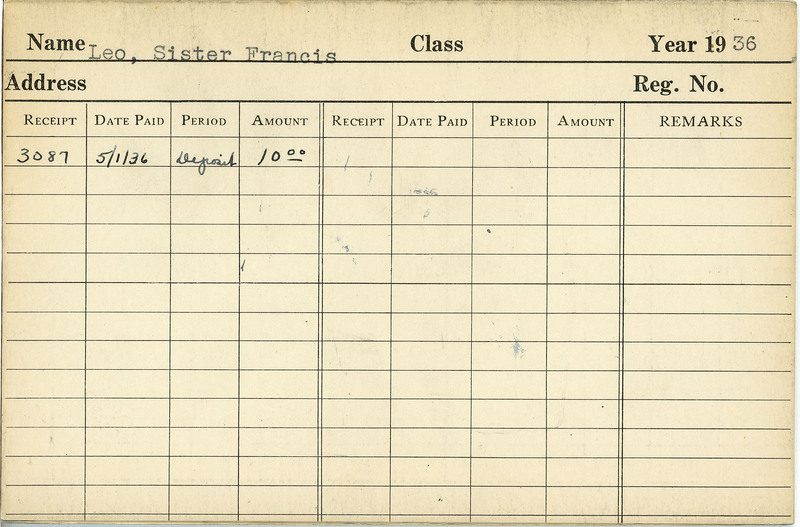 Name Leo, Sister Francis Class Year 1936
Address Reg. No.
RECEIPT DATE PAID PERIOD AMOUNT RECEIPT DATE PAID PERIOD AMOUNT REMARKS
3087 5/1/36 Deposit 10 00